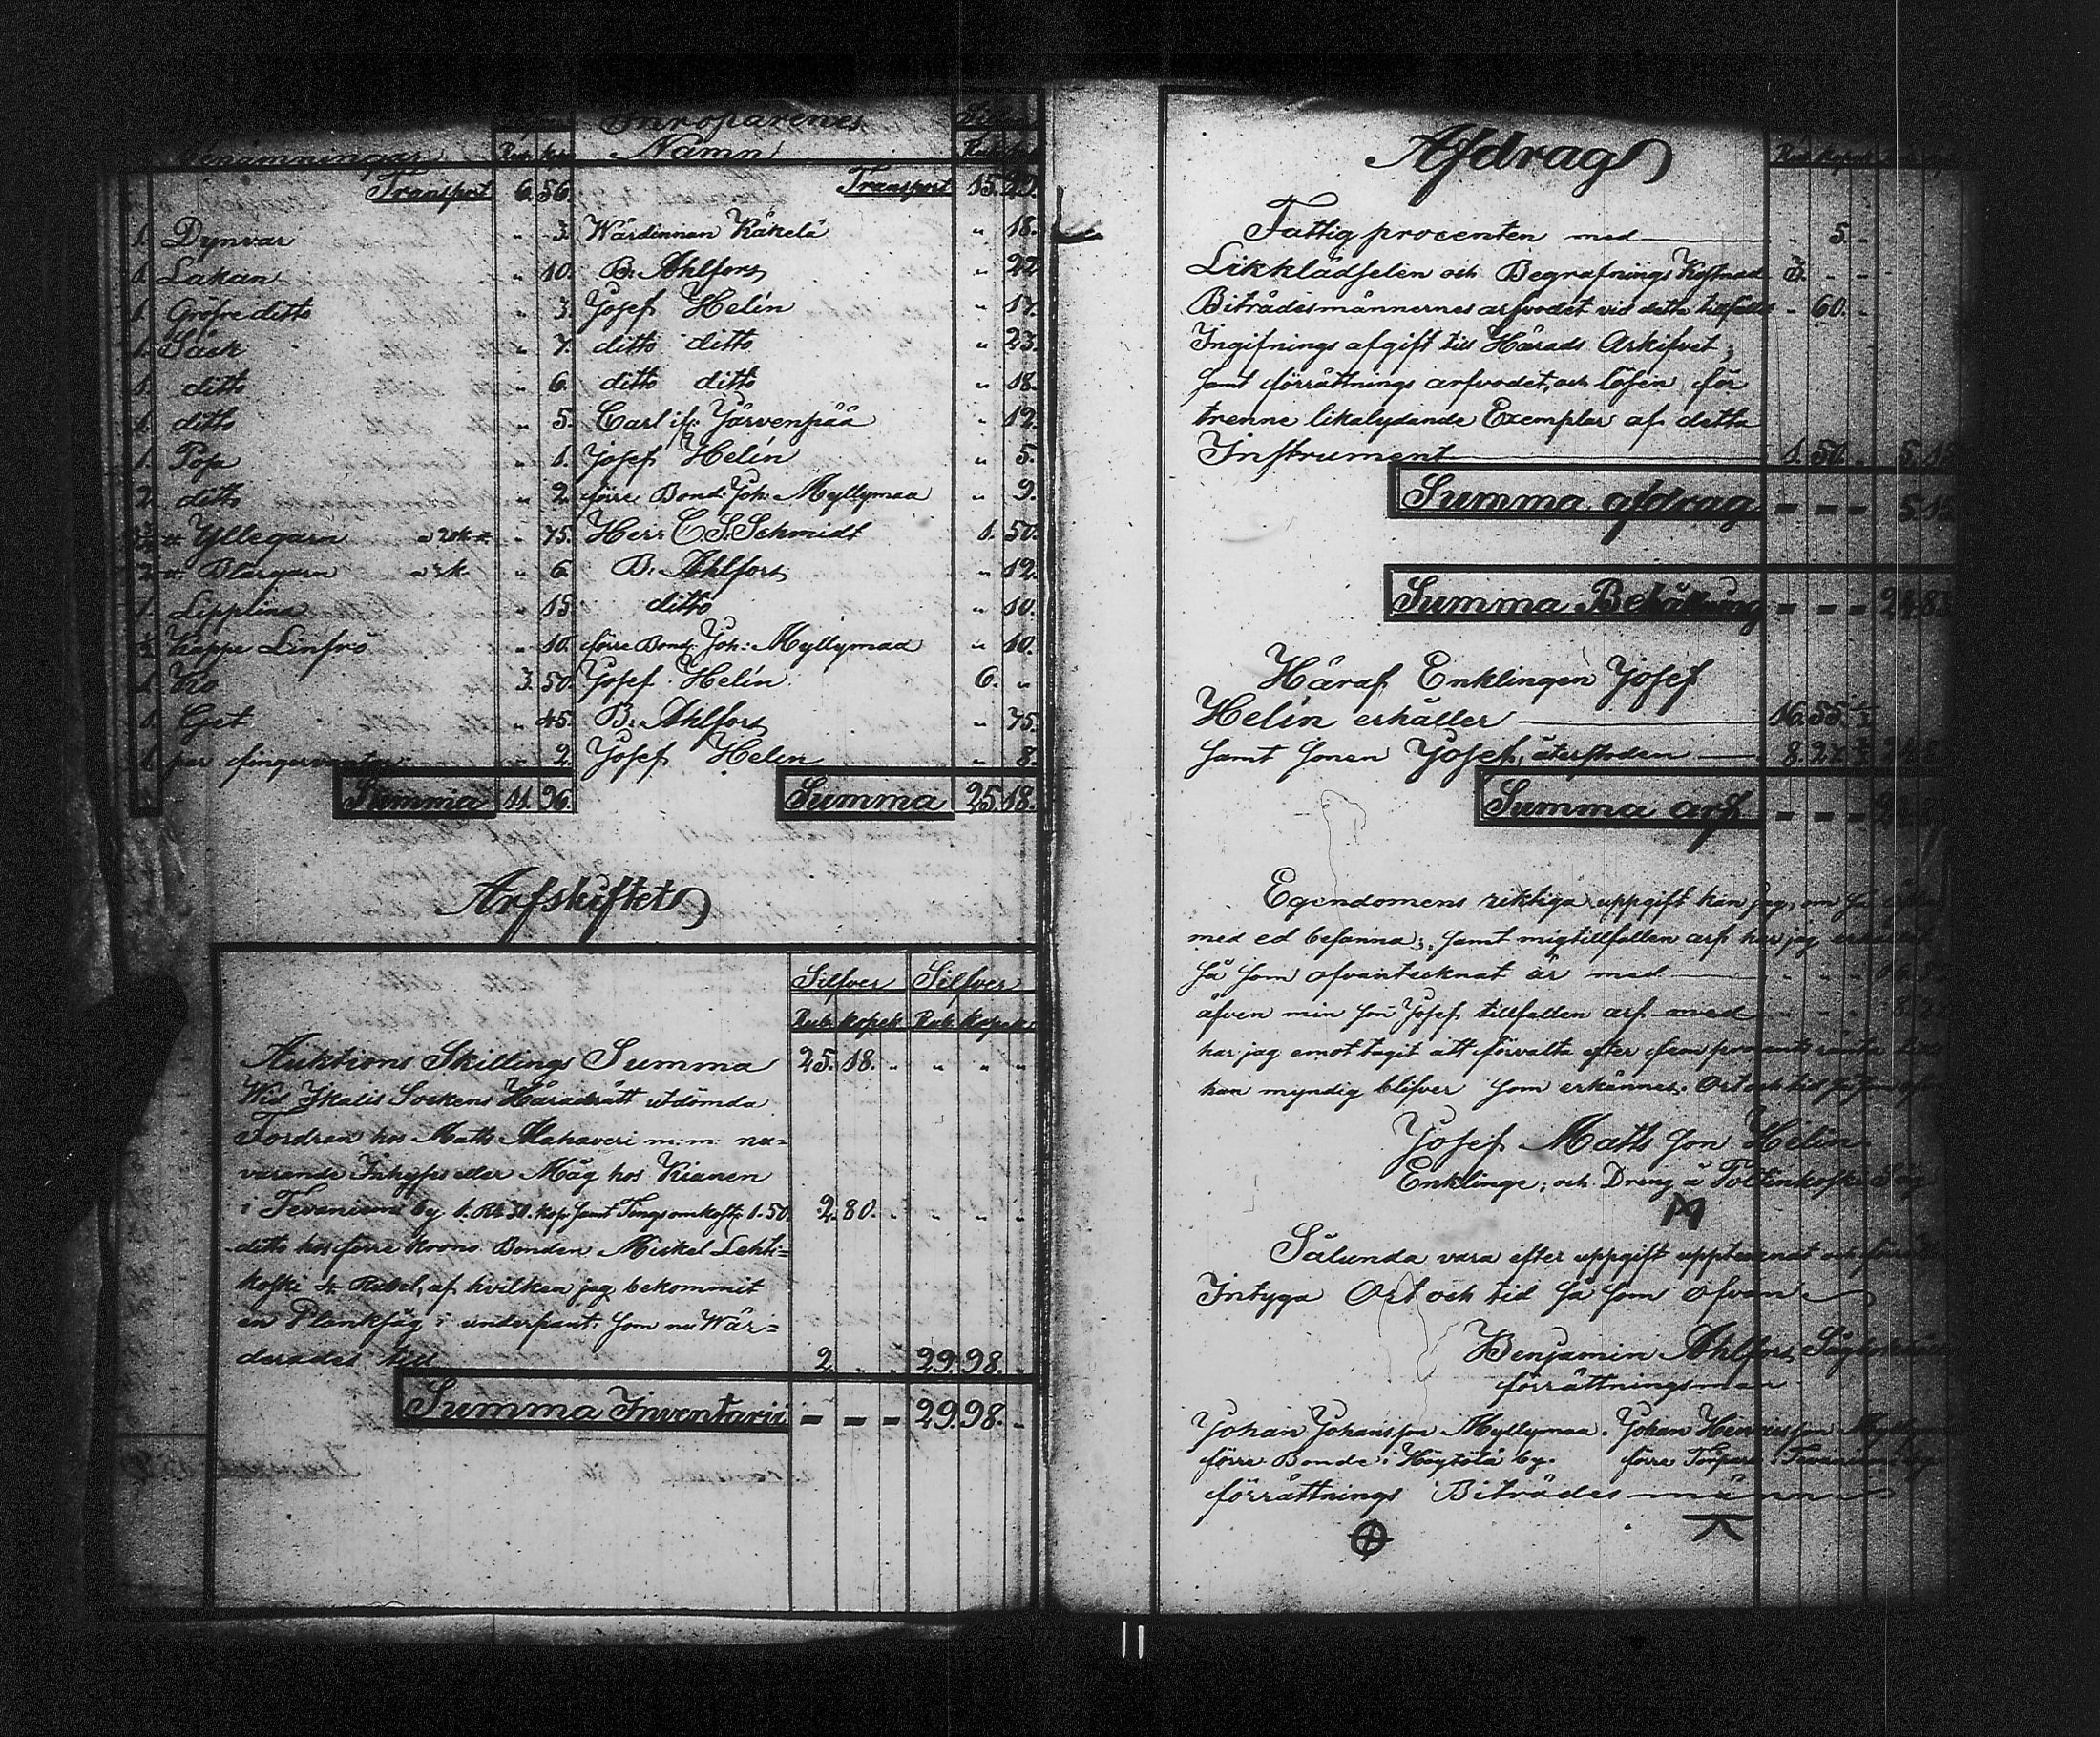 Benämningar Rub. kop. Inroparenes Namn Silfver Rub. kop.
Transport 6. 56. Transport 15. 29.
1. Dynvar " 3. Wärdinnan Käkelä " 18.
1. Lakan " 10. B: Ahlfors " 22
1. Gröfre ditto " 3. Josef Helin " 17.
1. Säck " 7. ditto ditto " 23.
1. ditto " 6. ditto ditto " 18.
1. ditto " 5. Carl if: Järvenpää " 12.
1. Påsa " 1. Josef Helin " 5.
2. ditto " 2. förre Bond: Joh: Myllymaa " 9.
Yllegarn " 75. Herr C. S. Schmidt 1. 50.
2 Blårgarn " 6. B: Ahlfors " 12.
1. Lipplina " 15. ditto " 10.
Kappe Linfrö " 10. förre Bond: Joh: Myllymaa " 10.
1. Ko 3. 50. Josef Helin 6. "
1. Get " 45. B: Ahlfors " 75.
1. par fingervantar " 2. Josef Helin " 8.
Summa 11. 96. Summa 25. 18.
Arfskiftet
Silfver Silfver
Rub. kopek Rub. kopek
Auktions Skillings Summa 25. 18. " " " "
Wid Ikalis Sockens Häradsrätt utdömda
Fordran hos Matts Alahaveri m: m: nu=
varande Inhyses eller Måg hos Kianen
i Tevaniemi by 1. Rub. 30. kop. samt Tings omkostn: 1. 50. 2. 80. " " " "
ditto hos förre krono Bonden Mickel Lehti=
koski 4 Rubel, af hvilken jag bekommit
en Planksåg i underpant; som nu Wär=
derades till 2. " " 29. 98. "
Summa Inventarii - - - 29. 98. "
Afdrag
Fattig procenten med " 5. "
Likklädselen och Begrafnings Kostnad 3. " "
Biträdesmännernes arfvodet vid detta tillfälle " 60. "
Ingifnings afgift till Härads Arkifvet,
samt förrättnings arfvodet, och lösen för
trenne likalydande Exemplar af detta
Instrument 1. 50. " 5. 15
Summa afdrag - - - 5. 15
Summa Behållning - - - 24. 83
Häraf Enklingen Josef
Helin erhåller 16. 55. 1/3
samt sonen Josef, återstoden 8. 27. 2/3
Summa arf - - -
Egendomens riktiga uppgift kan jag, om så
med ed besanna; samt mig tillfallen arf har jag
så som ofvantecknat är med
äfven min son Josef tillfallen arf med
har jag emot tagit att förvalta efter fem procents ränta
han myndig blifver som erkännes. Ort och tid så som
Josef Matts son Helin
Enklinge, och Dreng å
Sålunda vara efter uppgift upptecknat och
Intyga Ort och tid så som ofvan
Benjamin Ahlfors
förrättningsman
Johan Johansson Myllymaa. Johan Henriksson
förre Bonde i Höytölä by. förre Torpare i Tevaniemi
förrättnings Biträdes männ
11